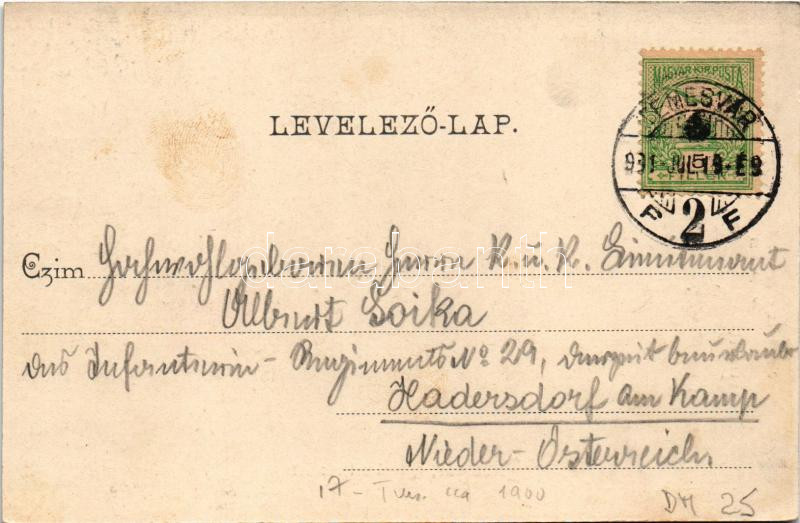 LEVELEZŐ-LAP.
MAGYAR KIR. POSTA
TEMESVÁR
5
FILLÉR
P 2 F
Czim Hochwohlgeboren Herrn K. u. K. Lieutenant
Albert Soika
des Infanterie-Regiments No 29, derzeit beurlaubt
Hadersdorf am Kamp
Nieder-Österreich.
1900
DM 25
darabanth